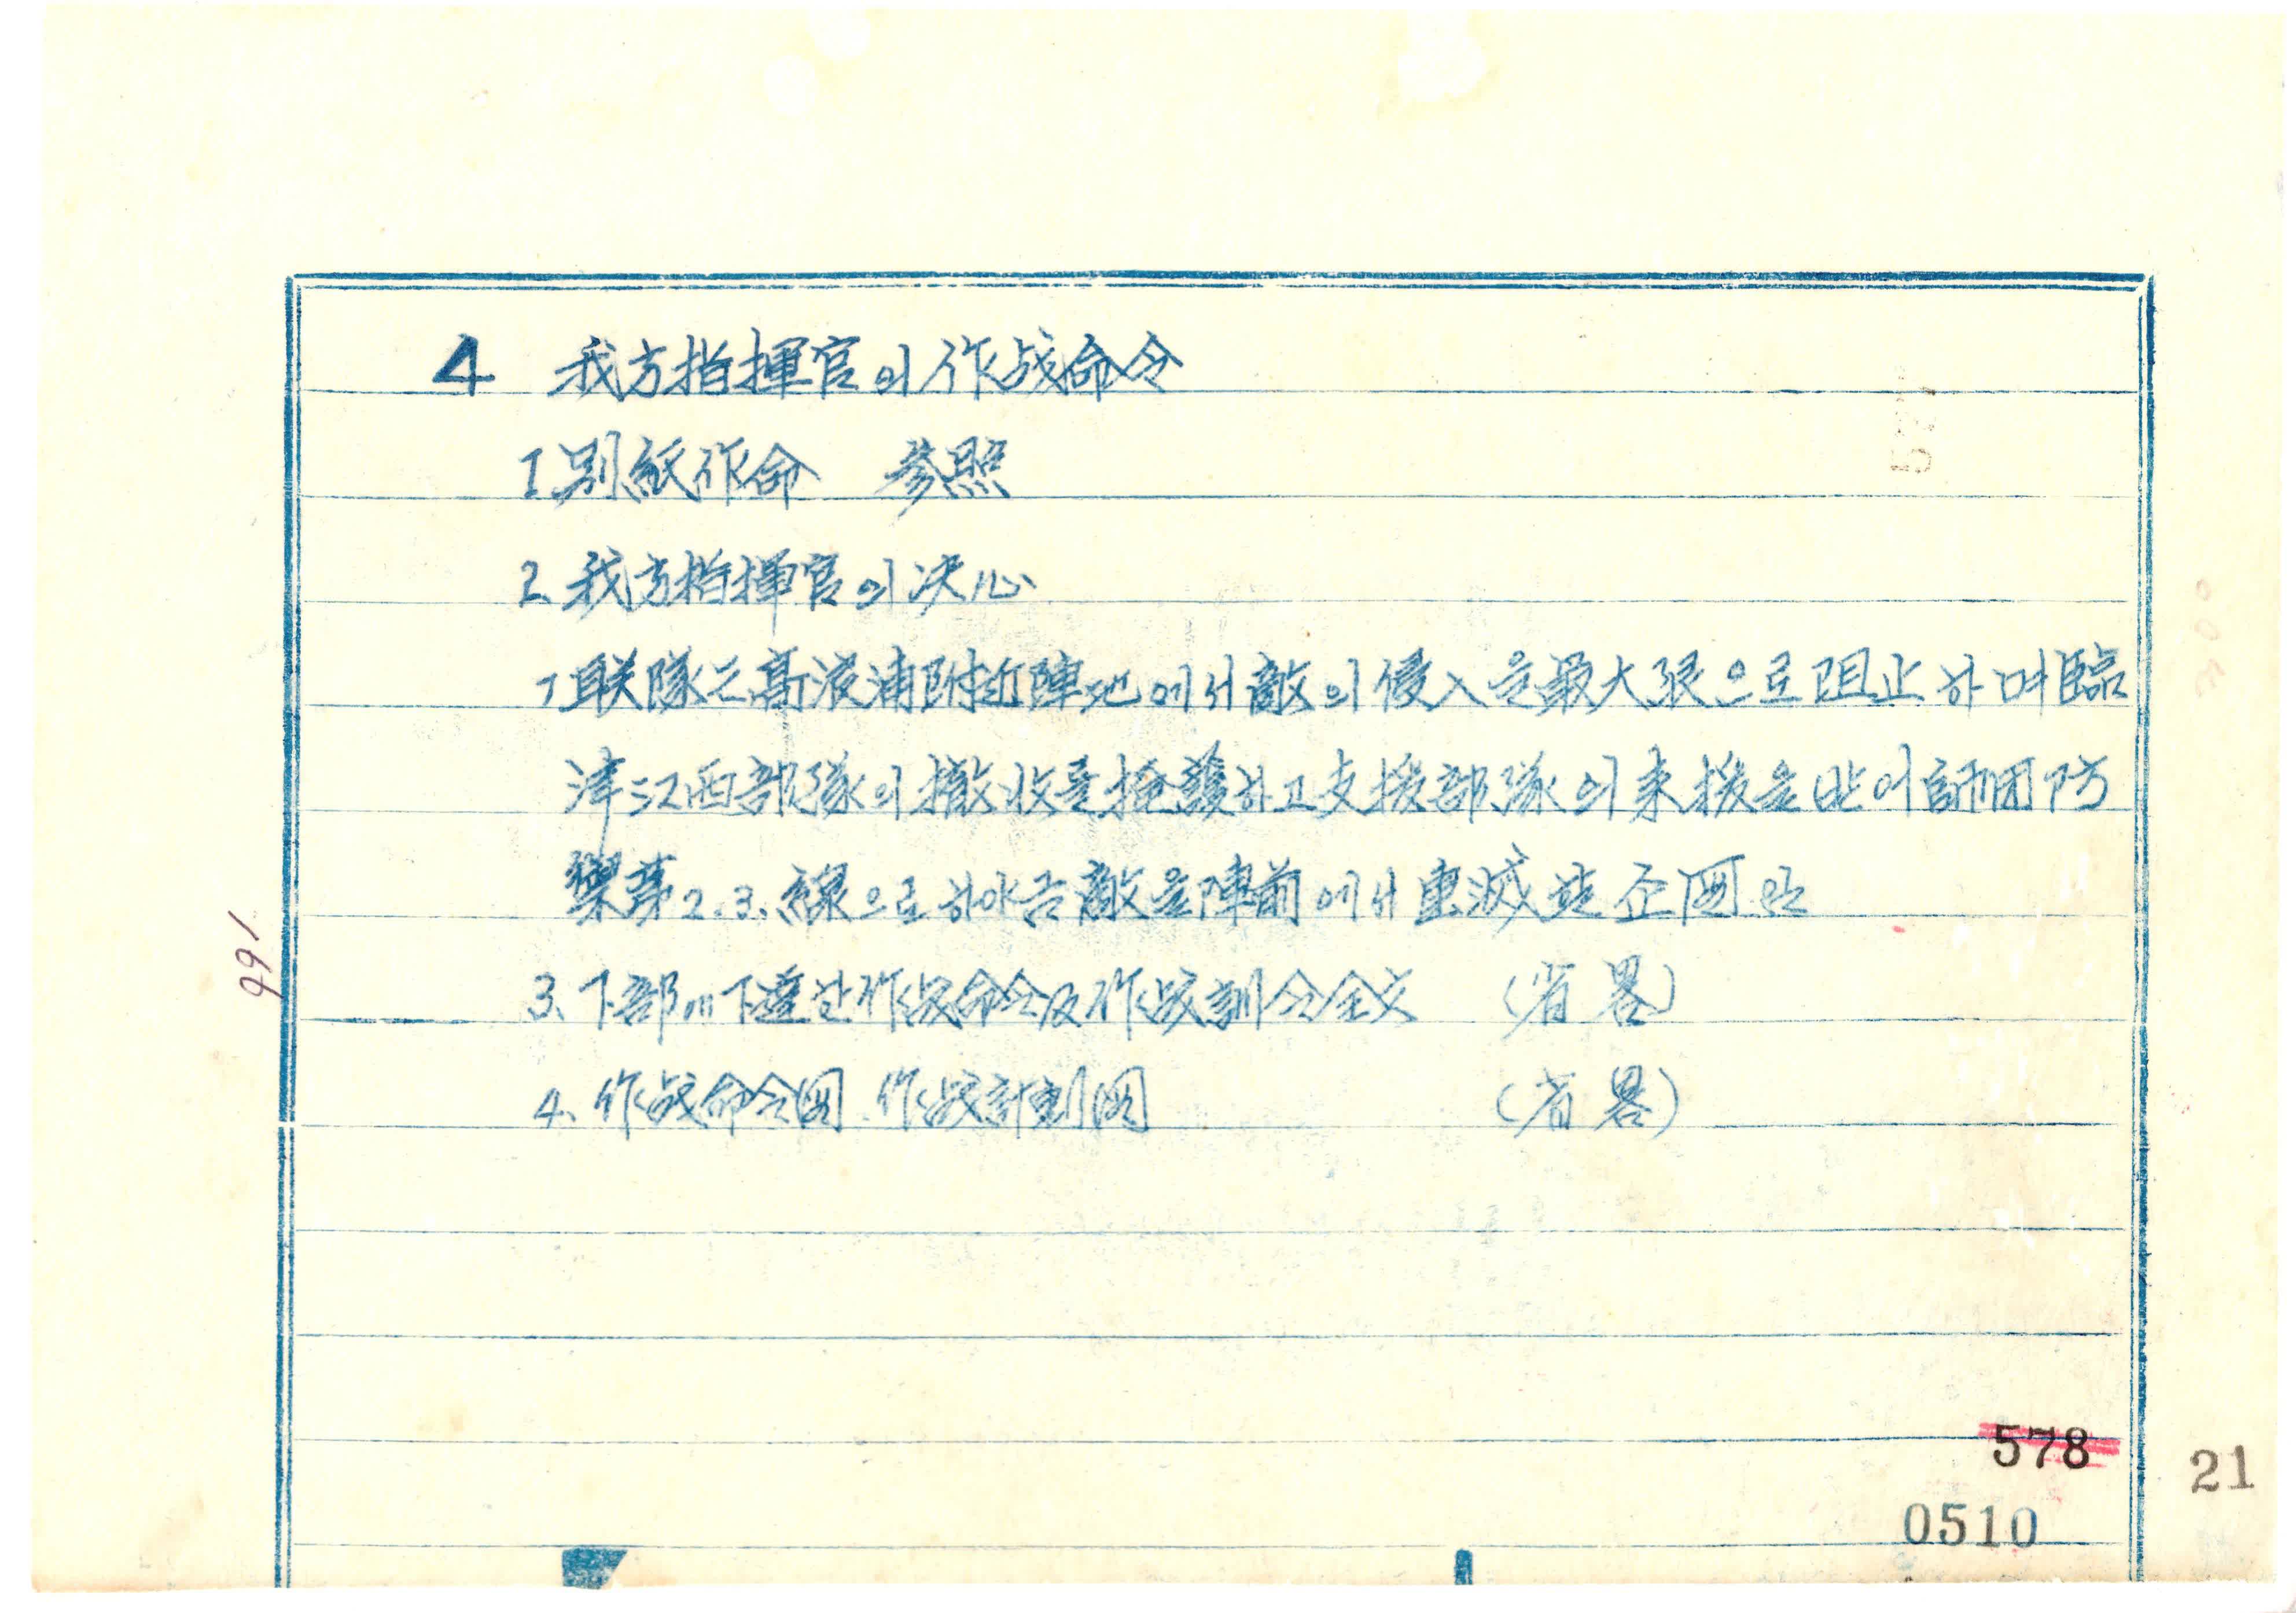 4 我方指揮官의 作战命令
1. 別紙作命 參照
2. 我方指揮官의 决心
ㄱ 联隊는 高浪浦附近陣地에서 敵의 侵入을 最大限으로 阻止하며 臨
津江西部隊의 撤收를 掩護하고 支援部隊의 来援을 받어 師団防
禦第2.3.線으로하야금 敵을 陣前에서 滅 企図함
3. 下部에 下達한 作战命令及作战訓令全文 (省畧)
4. 作战命令図 作战計劃図 (省畧)
991
578
0510
21